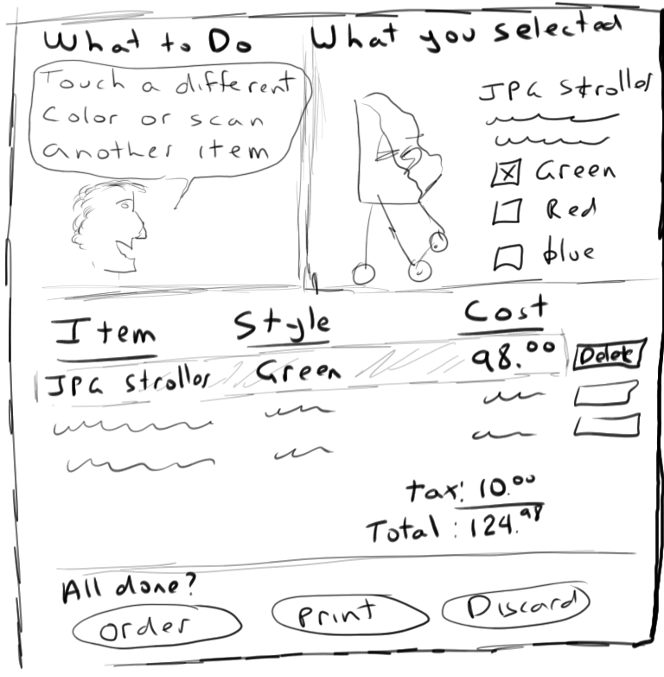 What to Do
Touch a different
Color or scan
another item
What you selected
JPG Stroller
Green
Red
blue
Item Style Cost
JPG Stroller Green 98.00 Delete
tax: 10.00
Total: 124.98
All done?
order print Discard